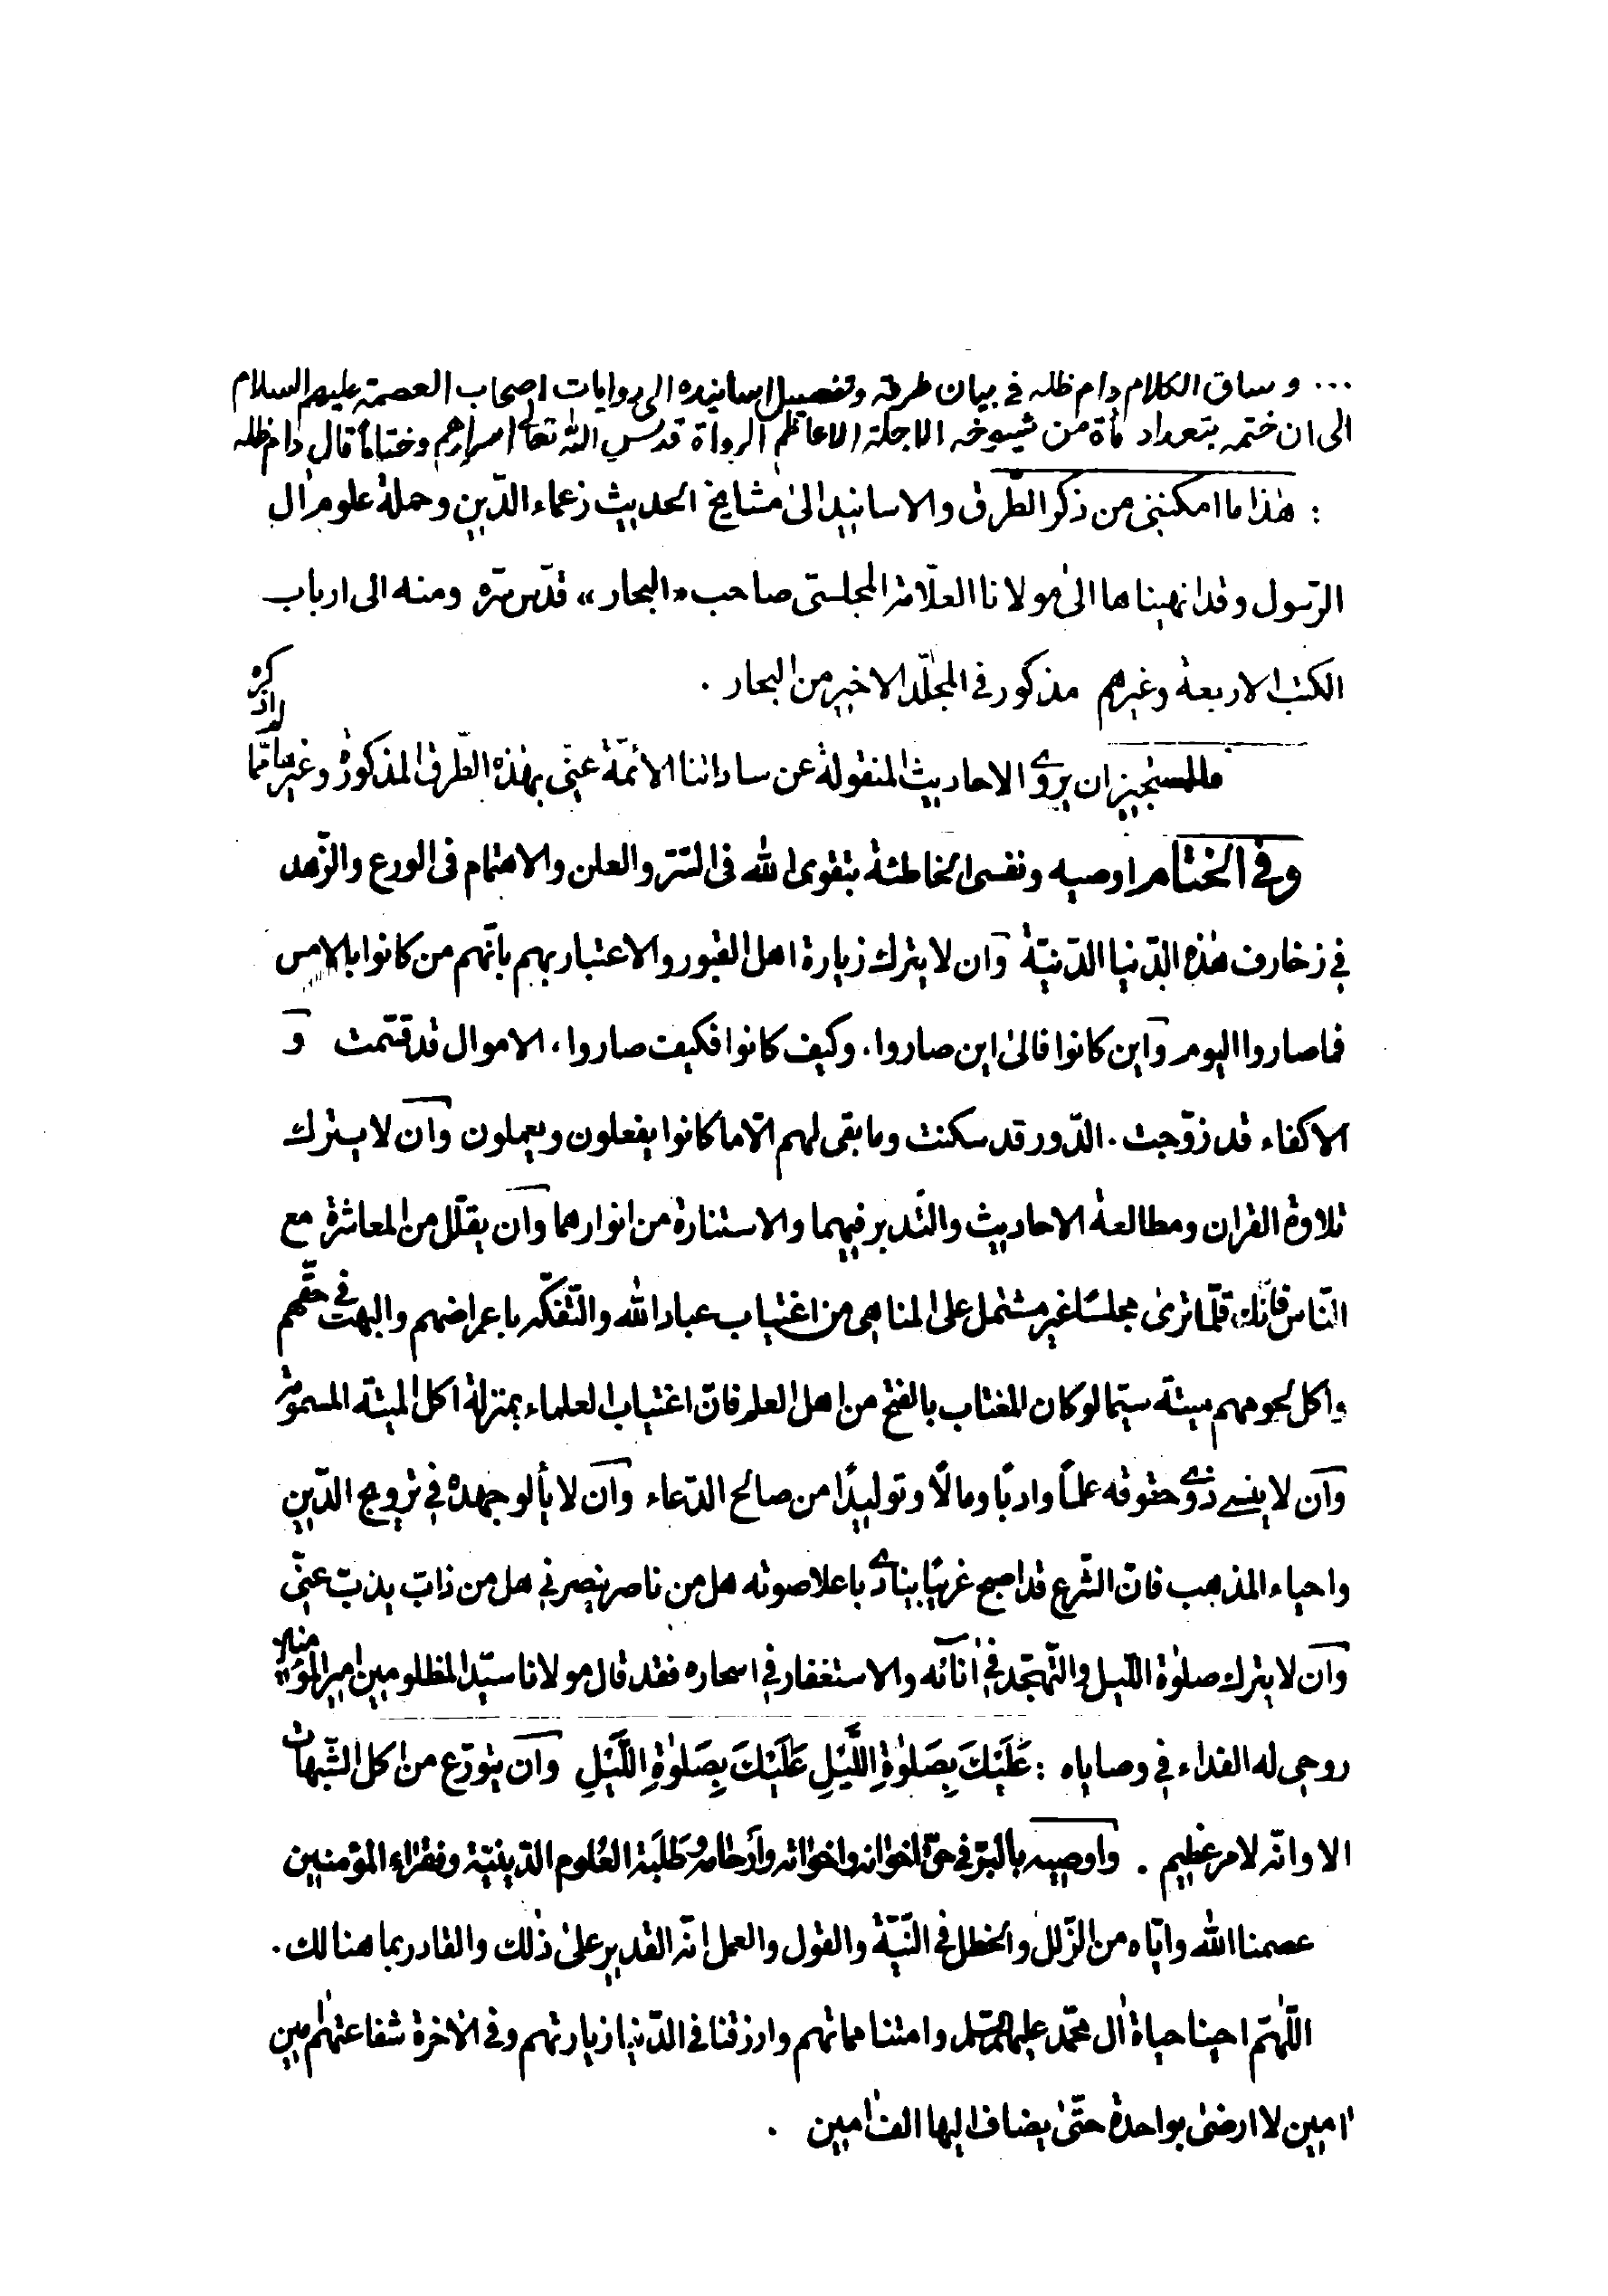 ... و ساق الكلام دام ظله في بيان طرقه وتفصيل اسانيده الى روايات اصحاب العصمة عليهم السلام
الى ان ختمه بتعداد مأة من شيوخه الاجلة الاعاظم الرواة قدس الله تعالى اسرارهم وختاماً قال دام ظله
: هٰذا ما امكننى من ذكر الطّرق والاسانيد الىٰ مشايخ الحديث زعماء الدّين وحملة علوم اٰل
الرّسول وقد انهيناها الىٰ مولانا العلّامة المجلسىّ صاحب «البحار» قدّس سرّه ومنه الى ارباب
الكتب الاربعة وغيرهم مذكور فى المجلّد الاخير من البحار .
فللمستجيز ان يروى الاحاديث المنقولة عن ساداتنا الأئمّة عنّى بهٰذه الطّرق المذكورة وغيرها ممّا
لم اذكره
وفى الختام اوصيه ونفسى الخاطئة بتقوى الله فى السّرّ والعلن والاهتمام فى الورع والزّهد
في زخارف هٰذه الدّنيا الدّنيّة وَان لا يترك زيارة اهل القبور والاعتبار بهم بانّهم من كانوا بالامس
فما صاروا اليوم وَاين كانوا فالىٰ اين صاروا، وكيف كانوا فكيف صاروا، الاموال قد قسّمت وَ
الاكفاء قد زوّجت . الدّور قد سكنت وما بقى لهم الّا ما كانوا يفعلون ويعملون وَان لا يترك
تلاوة القراٰن ومطالعة الاحاديث والتّدبر فيهما والاستنارة من انوارهما وَان يقلّل من المعاشرة مع
النّاس فانّك قلّما ترىٰ مجلسًا غير مشتمل على المناهى من اغتياب عباد الله والتّفكّه باعراضهم والبهت في حقّهم
واكل لحومهم ميتة سيّما لو كان المغتاب بالفتح من اهل العلم فانّ اغتياب العلماء بمنزلة اكل الميتة المسمومة
وَان لا ينسى ذوى حقوقه علمًا وادبًا ومالًا وتوليدًا من صالح الدّعاء وَان لا يألو جهده في ترويج الدّين
واحياء المذهب فانّ الشّرع قد اصبح غريبًا ينادى باعلا صوته هل من ناصر ينصرنى هل من ذابّ يذبّ عنّى
وَان لا يترك صلوٰة اللّيل والتّهجّد فى اٰنائه والاستغفار فى اسحاره فقد قال مولانا سيّد المظلومين امير المؤمنين
روحى له الفداء فى وصاياه : عَلَيْكَ بِصَلوٰةِ اللَّيْلِ عَلَيْكَ بِصَلوٰةِ اللَّيْلِ وَان يتورّع من كل الشّبهات
الا وانّه لامر عظيم . واوصيه بالبرّ فى حقّ اخوانه واخواته وأرحامه وطَلَبَة العُلوم الدّينيّة وفقراء المؤمنين
عصمنا الله وايّاه من الزّلل والخطل فى النّيّة والقول والعمل انّه القدير علىٰ ذٰلك والقادر بما هنالك .
اللّٰهمّ احينا حياة اٰل محمّد عليهم السّلام وامتنا مماتهم وارزقنا فى الدّنيا زيارتهم وفى الاٰخرة شفاعتهم اٰمين
اٰمين لا ارضىٰ بواحدة حتّىٰ يضاف اليها الف اٰمين .